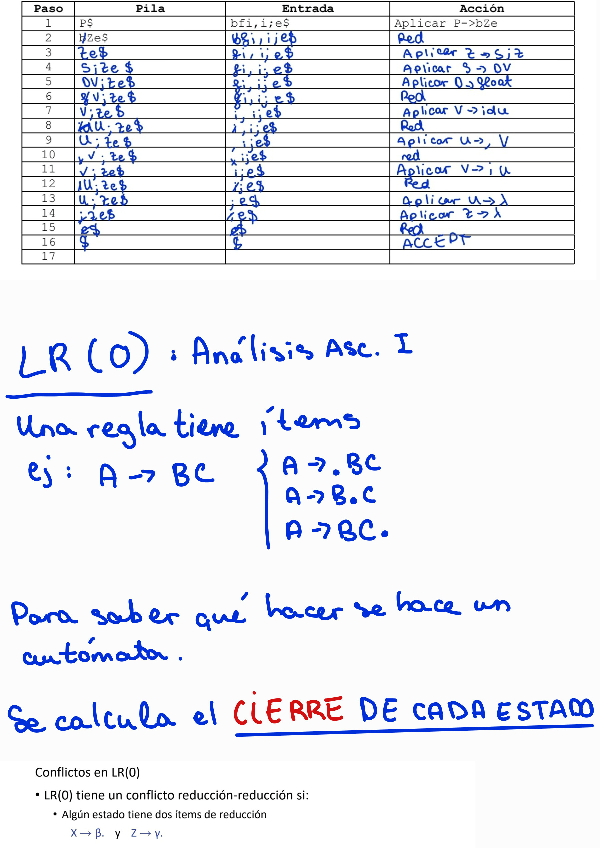 Paso Pila Entrada Acción
1 P$ bfi,i;e$ Aplicar P->bZe
2 bZe$ bfi,i;e$ Red
3 Ze$ fi,i;e$ Aplicar Z→S;Z
4 S;Ze$ fi,i;e$ Aplicar S→DV
5 DV;Ze$ fi,i;e$ Aplicar D→float
6 fV;Ze$ fi,i;e$ Red
7 V;Ze$ i,i;e$ Aplicar V→idU
8 idU;Ze$ i,i;e$ Red
9 U;Ze$ ,i;e$ Aplicar U→,V
10 ,V;Ze$ ,i;e$ red
11 V;Ze$ i;e$ Aplicar V→iU
12 iU;Ze$ i;e$ Red
13 U;Ze$ ;e$ Aplicar U→λ
14 ;Ze$ ;e$ Aplicar Z→λ
15 e$ e$ Red
16 $ $ ACCEPT
17
LR(0): Análisis Asc. I
Una regla tiene ítems
ej: A → BC { A → .BC
A → B.C
A → BC.
Para saber qué hacer se hace un
autómata.
Se calcula el CIERRE DE CADA ESTADO
Conflictos en LR(0)
• LR(0) tiene un conflicto reducción-reducción si:
• Algún estado tiene dos ítems de reducción
X → β. y Z → γ.